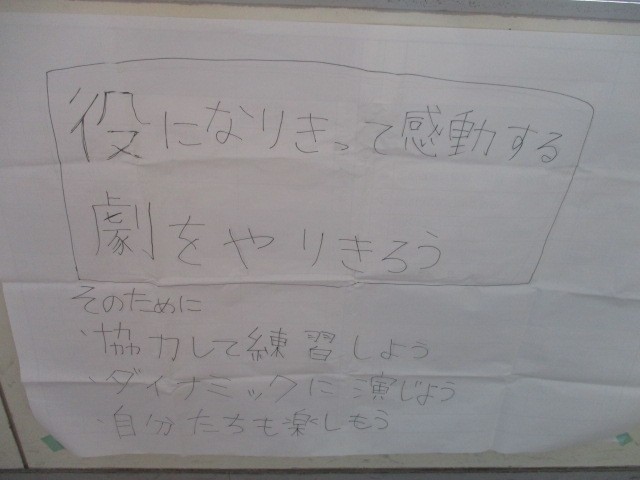 役になりきって感動する
劇をやりきろう
そのために
・協力して練習しよう
・ダイナミックに演じよう
・自分たちも楽しもう